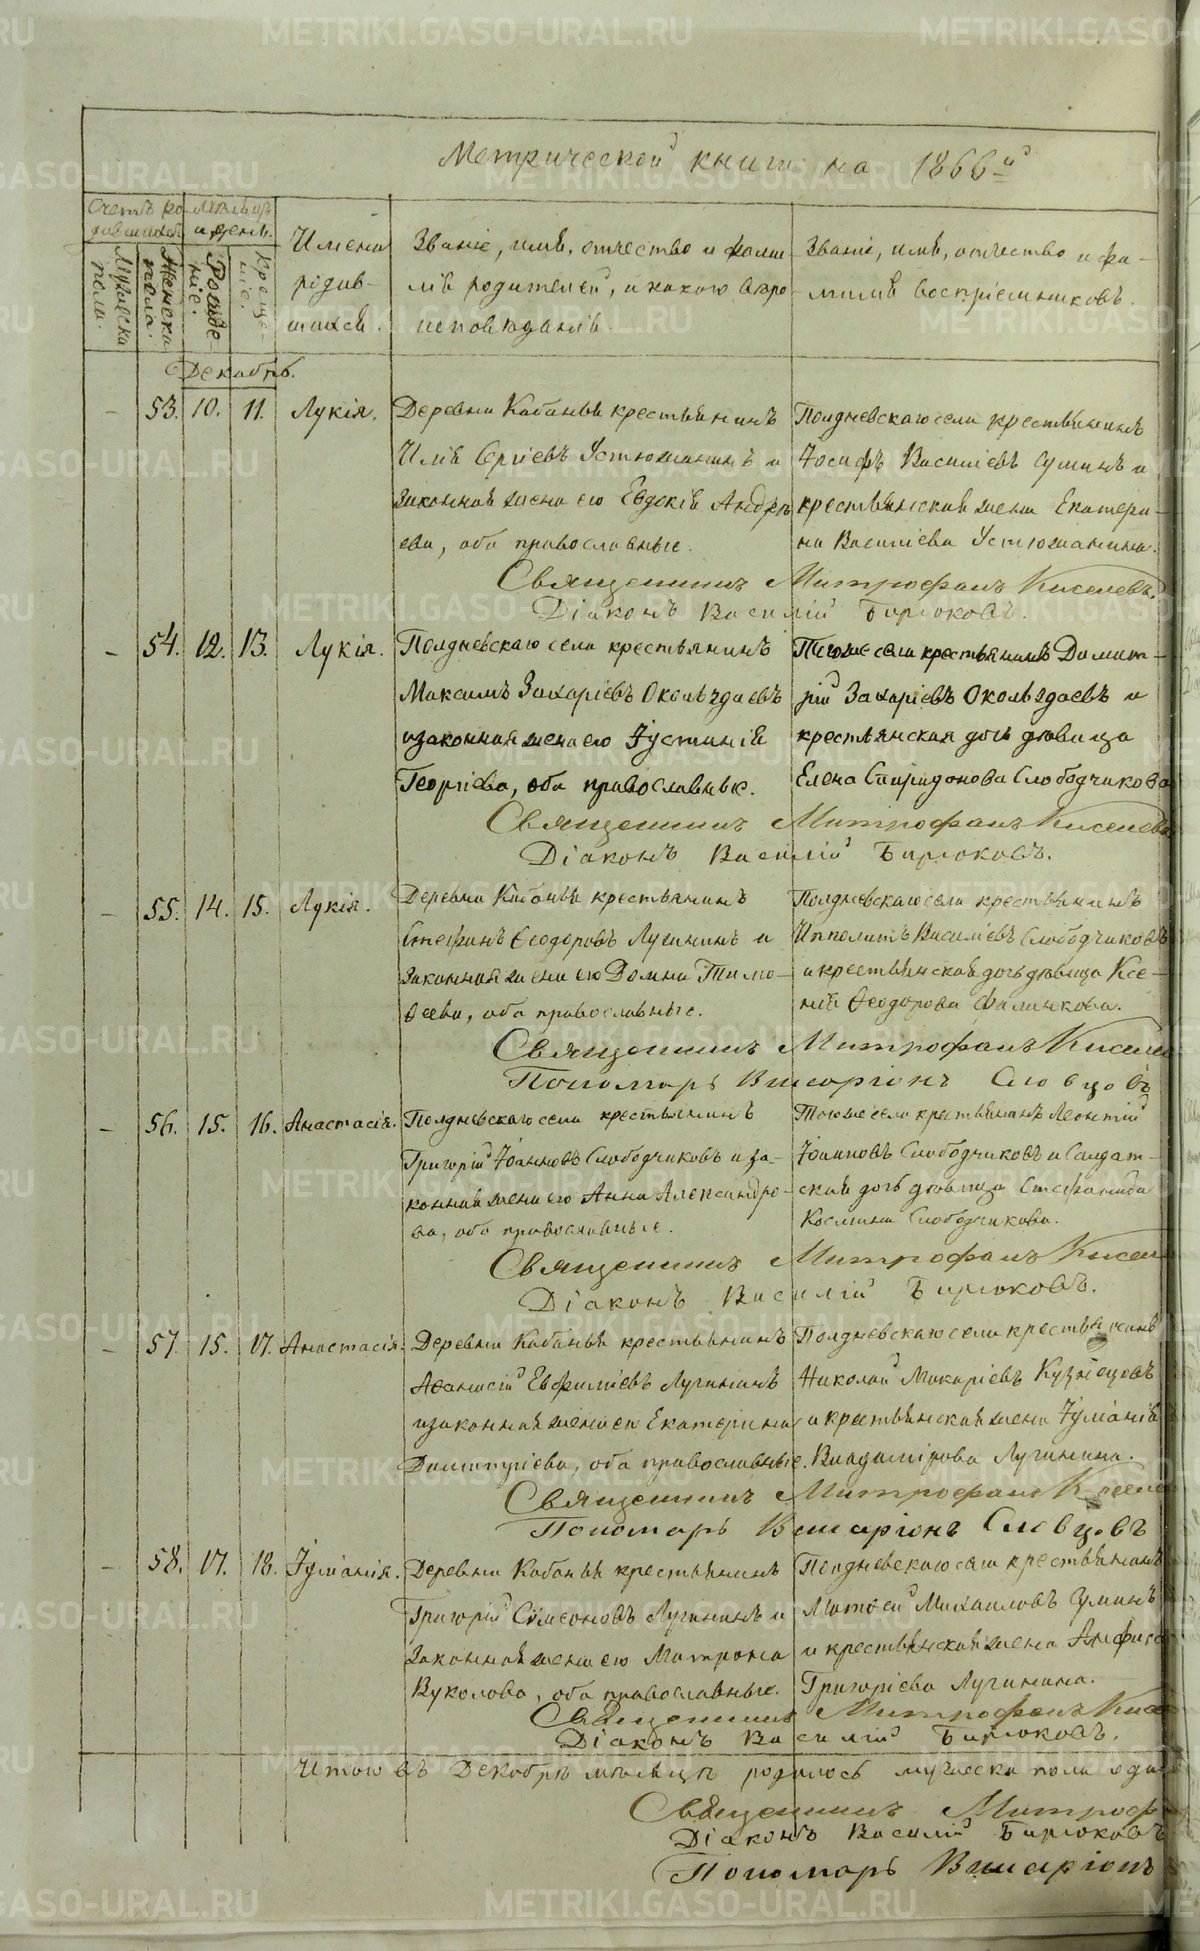 Метрической книги на 1866й
Счетъ родившихся.
Мѣсяцъ и день.
Мужеска пола.
Женска пола.
Рожденіе.
Крещеніе.
Имена родившихся.
Званіе, имя, отчество и фамилія родителей, и какого вѣроисповѣданія.
Званіе, имя, отчество и фамилія воспріемниковъ.
Декабрь.
– 53. 10. 11. Лукія.
Деревни Кабаньи крестьянинъ
Илія Сергіевъ Устюжанинъ и
законная жена его Евдокія Андрѣ
ева, оба православные.
Полдневскаго села крестьянинъ
Іосифъ Василіевъ Суминъ и
крестьянская жена Екатери-
на Василіева Устюжанина.
Священникъ Митрофанъ Киселевъ.
Діаконъ Василій Бирюковъ.
– 54. 12. 13. Лукія.
Полдневскаго села крестьянинъ
Максимъ Захаріевъ Околѣздаевъ
и законная жена его Іустинія
Георгіева, оба православные.
Тогоже села крестьянинъ Димит-
рій Захаріевъ Околѣздаевъ и
крестьянская дочь дѣвица
Елена Спиридонова Слободчикова
Священникъ Митрофанъ Киселевъ
Діаконъ Василій Бирюковъ.
– 55. 14. 15. Лукія.
Деревни Кабаньи крестьянинъ
Стефанъ Ѳеодоровъ Лугининъ и
законная жена его Домна Тимо-
ѳеева, оба православные.
Полдневскаго села крестьянинъ
Ипполитъ Василіевъ Слободчиковъ
и крестьянская дочь дѣвица Ксе-
нія Ѳеодорова Фалинкова.
Священникъ Митрофанъ Кисел
Пономарь Висаріонъ Словцовъ
– 56. 15. 16. Анастасія.
Полдневскаго села крестьянинъ
Григорій Іоанновъ Слободчиковъ и за-
конная жена его Анна Александро-
ва, оба православные.
Тогоже села крестьянинъ Леонтій
Іоанновъ Слободчиковъ и Солдат-
ская дочь дѣвица Стефанида
Космина Слободчикова.
Священникъ Митрофанъ Кисел
Діаконъ Василій Бирюковъ.
– 57. 15. 17. Анастасія.
Деревни Кабаньи крестьянинъ
Аѳанасій Евфиміевъ Лугининъ
и законная жена его Екатерина
Димитріева, оба православные.
Полдневскаго села крестьянинъ
Николай Макаріевъ Кузнецовъ
и крестьянская жена Іуліанія
Владимірова Лугинина.
Священникъ Митрофанъ Киселе
Пономарь Висаріонъ Словцовъ
– 58. 17. 18. Іуліанія.
Деревни Кабаньи крестьянинъ
Григорій Сѵмеоновъ Лугининъ и
законная жена его Матрона
Вуколова, оба православные.
Полдневскаго села крестьянинъ
Матѳей Михаиловъ Суминъ
и крестьянская жена Анфиса
Григоріева Лугинина.
Священникъ Митрофанъ Кисе
Діаконъ Василій Бирюковъ.
Итого въ Декабрѣ мѣсяцѣ родилось мужеска пола
Священникъ Митроф
Діаконъ Василій Бирюковъ
Пономарь Висаріонъ
METRIKI.GASO-URAL.RU